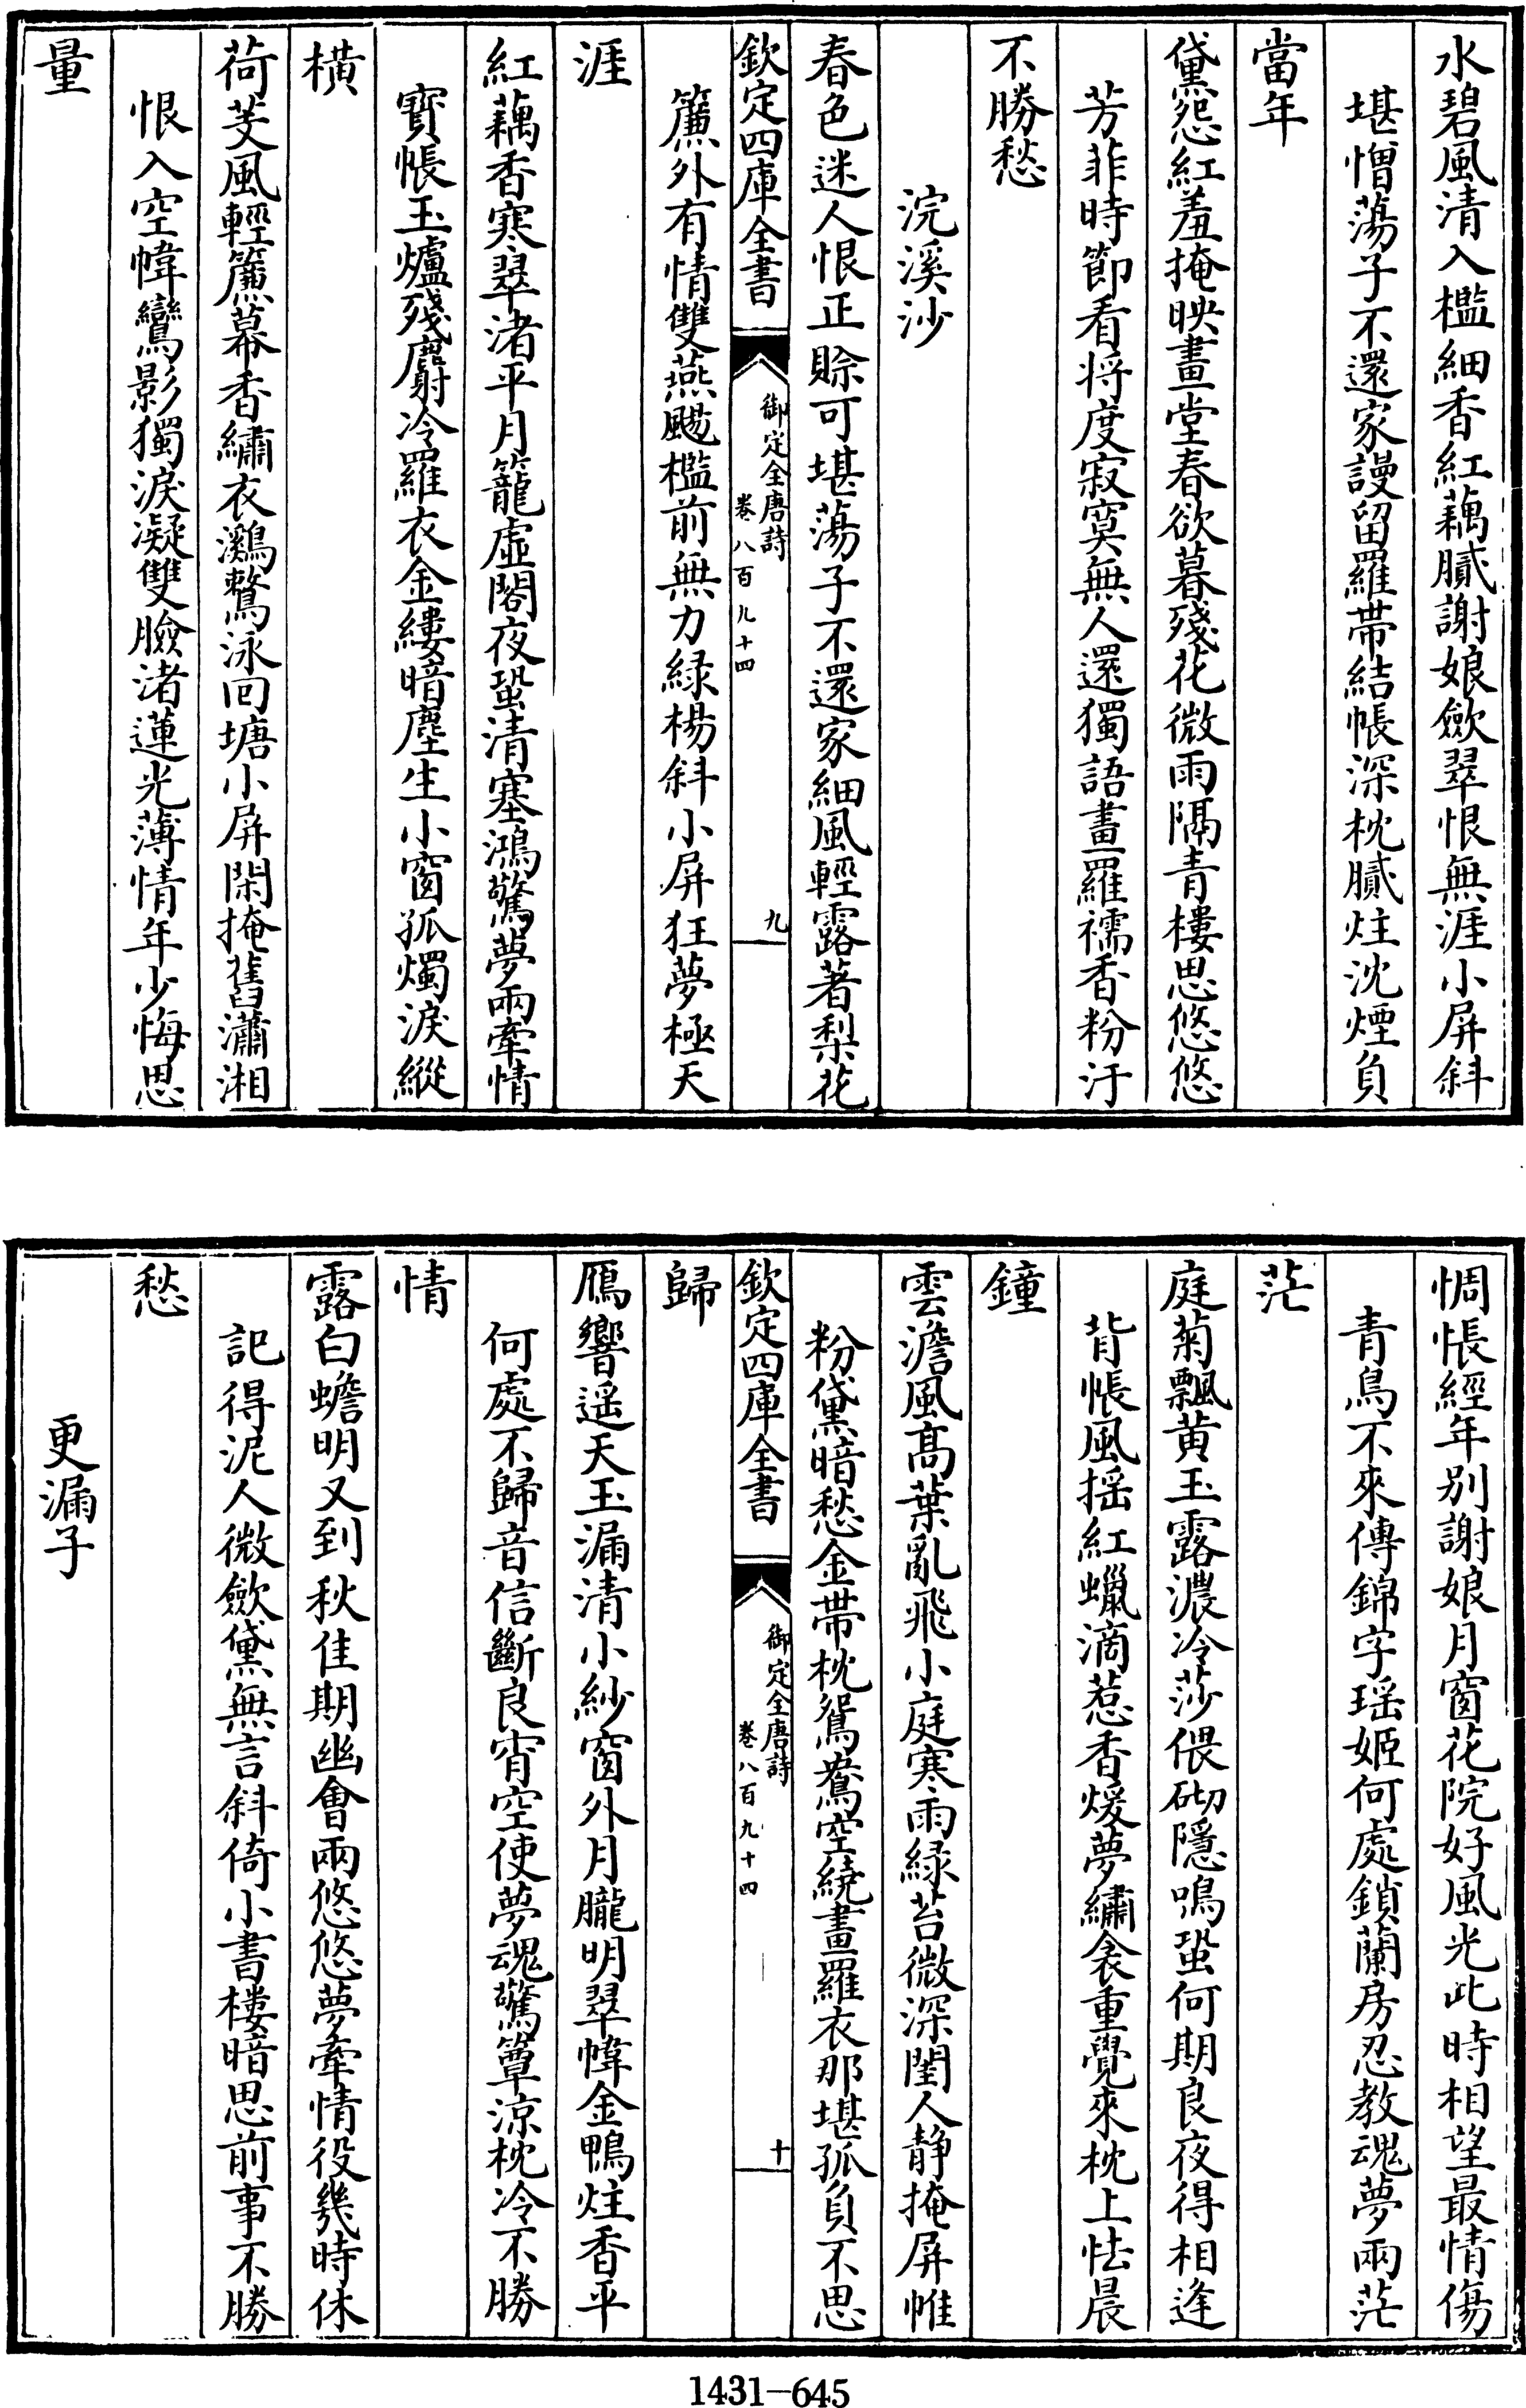 水碧風清入檻細香紅藕膩謝娘歛翠恨無涯小屏斜
堪憎蕩子不還家謾留羅帶結帳深枕膩炷沈煙負
當年
黛怨紅羞掩映畫堂春欲暮殘花微雨隔青樓思悠悠
芳菲時節看将度寂寞無人還獨語畫羅襦香粉汙
不勝愁
浣溪沙
春色迷人恨正賒可堪蕩子不還家細風輕露著梨花
欽定四庫全書
御定全唐詩
卷八百九十四
九
簾外有情雙燕颺檻前無力緑楊斜小屏狂夢極天
涯
紅藕香寒翠渚平月籠虛閣夜蛩清塞鴻驚夢兩牽情
寶帳玉爐殘麝冷羅衣金縷暗塵生小窗孤燭淚縱
橫
荷芰風輕簾幕香繡衣鸂鶩泳回塘小屏閑掩舊瀟湘
恨入空幃鸞影獨淚凝雙臉渚蓮光薄情年少悔思
量
惆悵經年别謝娘月窗花院好風光此時相望最情傷
青鳥不來傳錦字瑶姬何處鎖蘭房忍教魂夢兩茫
茫
庭菊飄黄玉露濃冷莎偎砌隱鳴蛩何期良夜得相逢
背帳風摇紅蠟滴惹香煖夢繡衾重覺來枕上怯晨
鐘
雲澹風髙葉亂飛小庭寒雨緑苔微深閨人静掩屏帷
粉黛暗愁金帶枕鴛鴦空繞畫羅衣那堪孤負不思
欽定四庫全書
御定全唐詩
卷八百九十四
十
歸
鴈響遥天玉漏清小紗窗外月朧明翠幃金鴨炷香平
何處不歸音信斷良宵空使夢魂驚簟涼枕冷不勝
情
露白蟾明又到秋佳期幽會兩悠悠夢牽情役幾時休
記得泥人微歛黛無言斜倚小書樓暗思前事不勝
愁
更漏子
1431-645